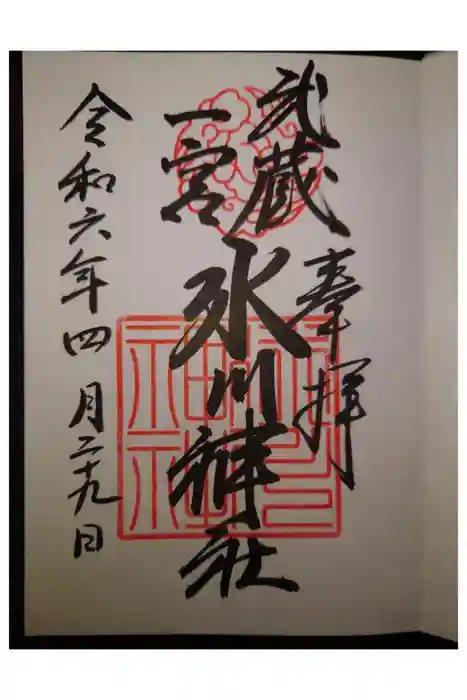 奉拝
武蔵
一宮
氷川神社
令和六年四月二十九日